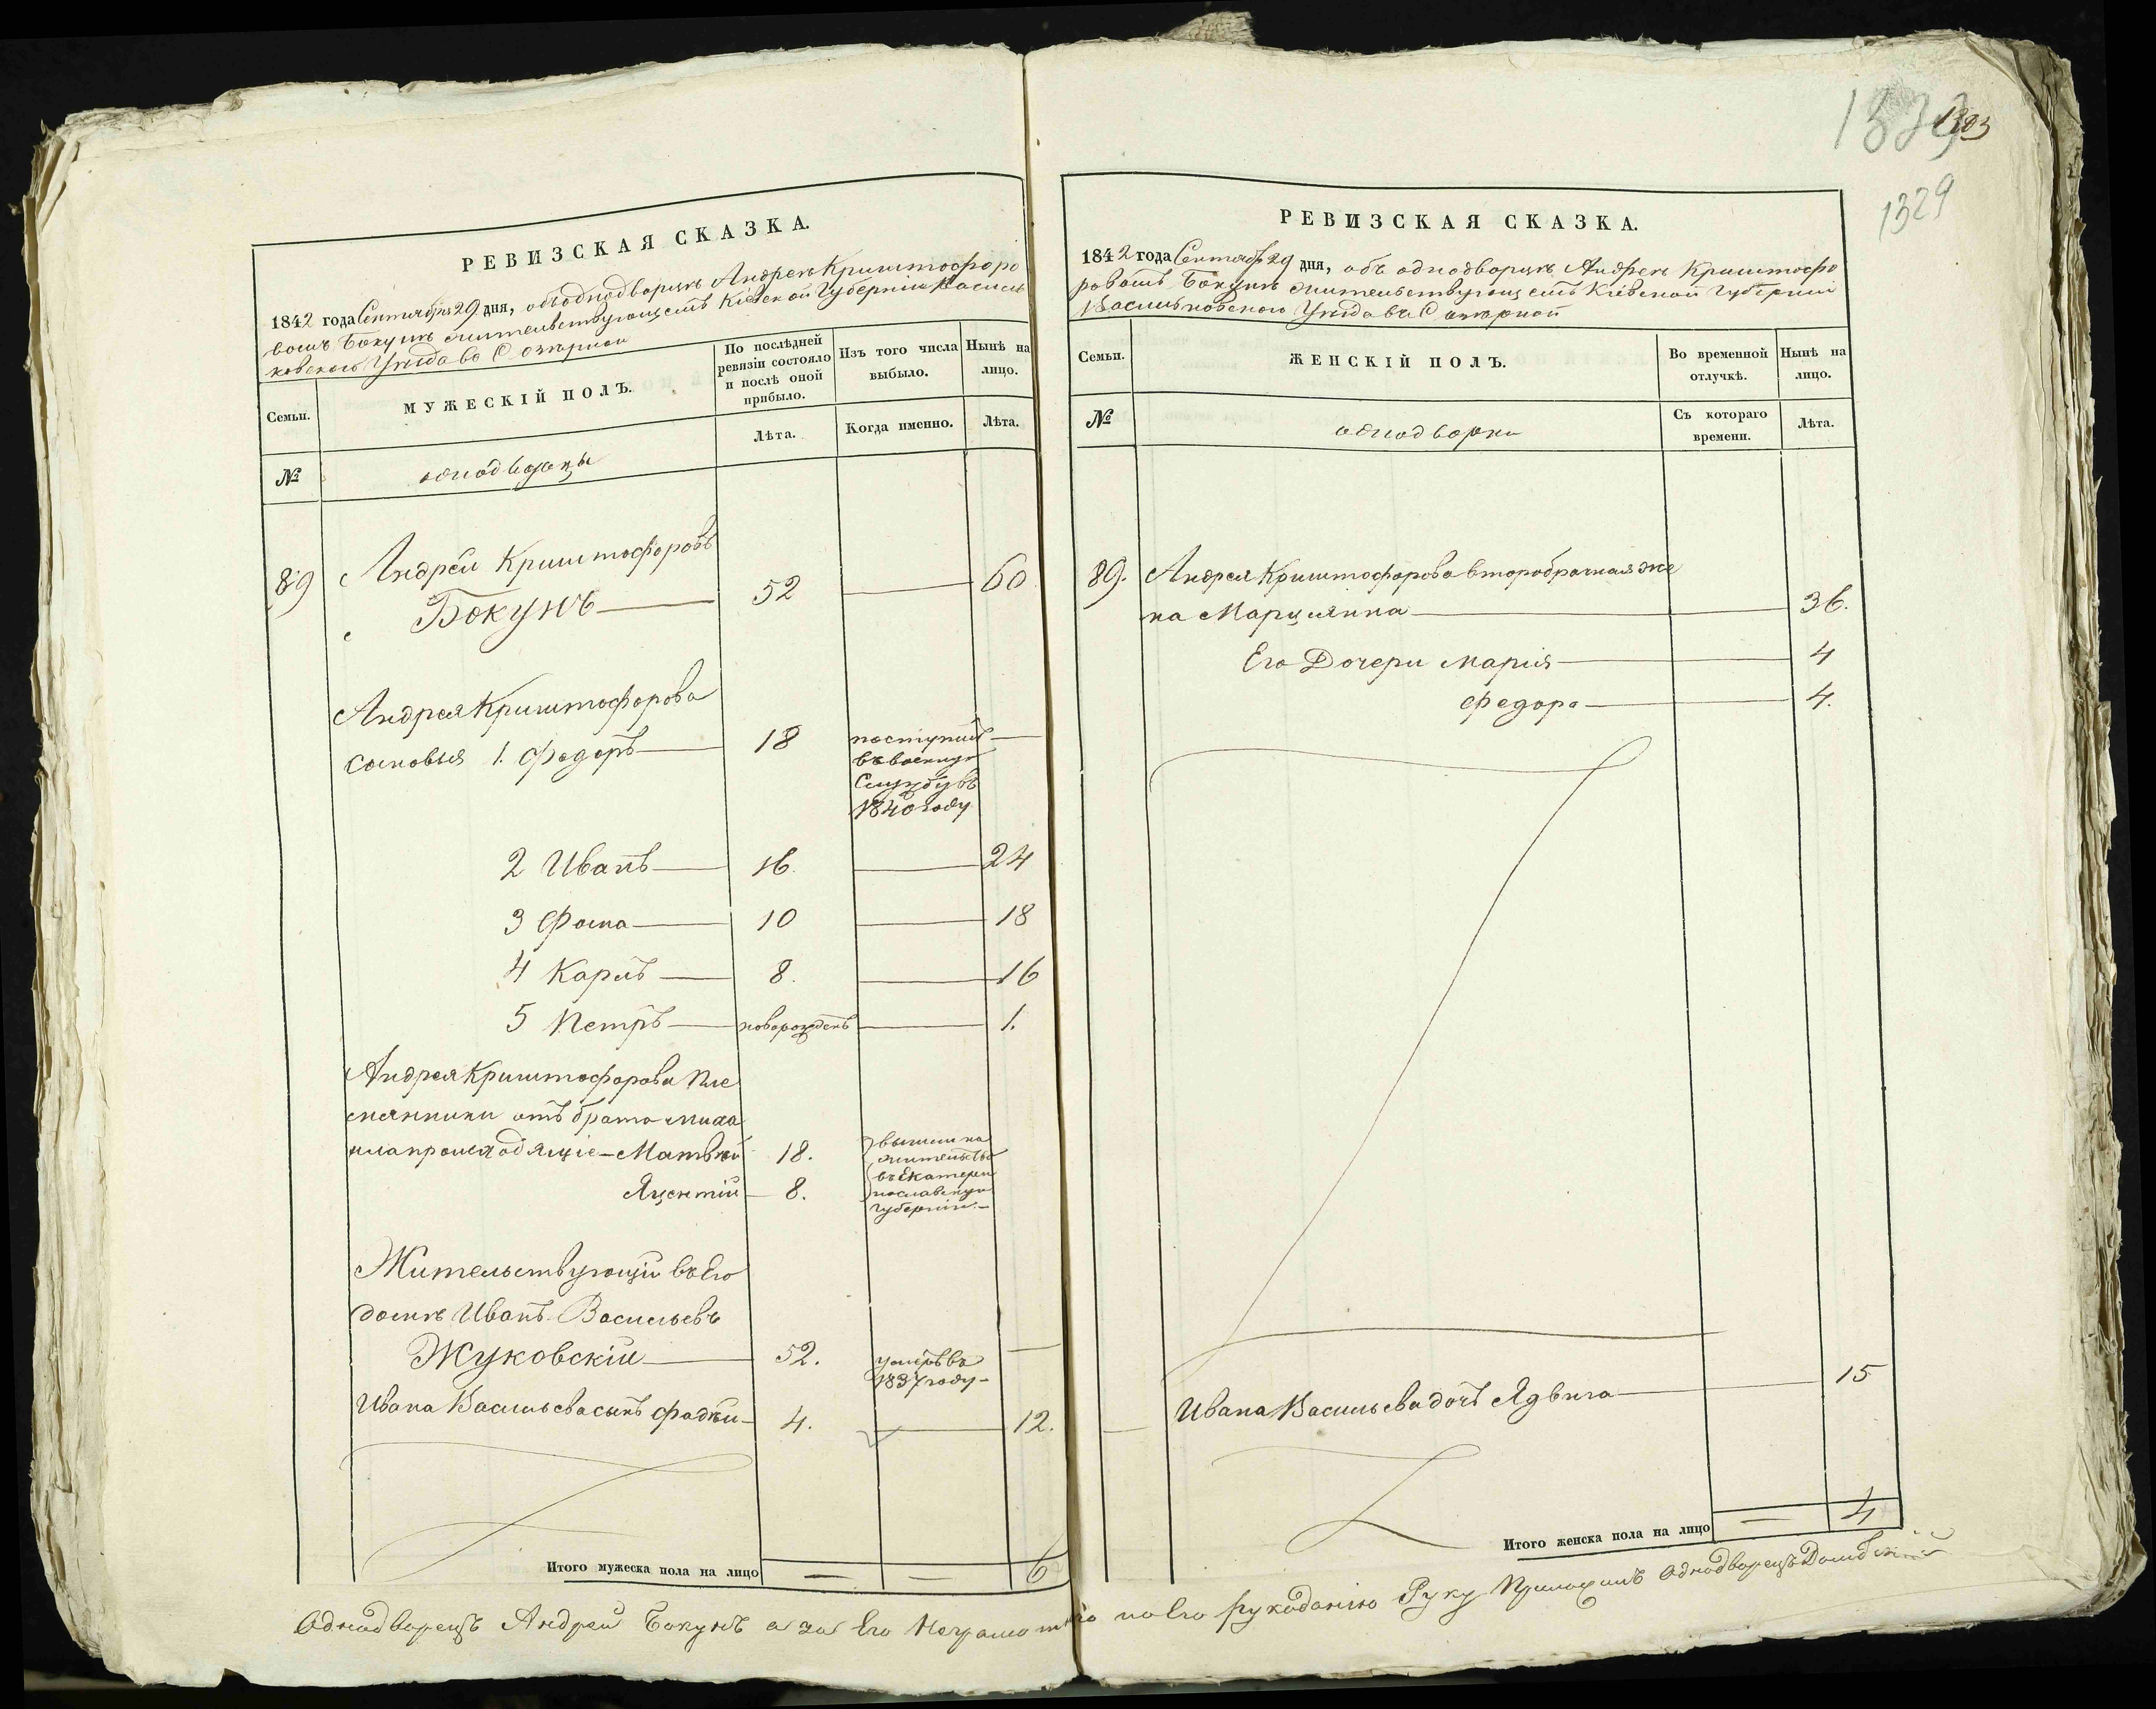 РЕВИЗСКАЯ СКАЗКА.
1842 года Сентября 29 дня, объ однодворцѣ Андреѣ Криштофоро
вомъ Бокунѣ жительствующемъ Кіевской Губерніи Василь
ковскаго Уѣзда въ С Озѣрной
Семьи.
МУЖЕСКІЙ ПОЛЪ.
По послѣдней
ревизіи состояло
и послѣ оной
прибыло.
Изъ того числа
выбыло.
Нынѣ на
лицо.
№
однодворцы
Лѣта.
Когда именно.
Лѣта.
89 Андрей Криштофоровъ
Бокунъ 52 60
Андрея Криштофорова
сыновья 1. Федоръ 18 поступилъ
въ военную
Службу въ
1840 году
2 Иванъ 16. 24
3 Фома 10 18
4 Карлъ 8. 16
5 Петръ новорожденъ 1.
Андрея Криштофорова пле
мянники отъ брата Миха
ила происходящіе Матвѣй 18. вышли на
жительство
въ Екатери
Яцентій 8. нославскую
губернію.
Жительствующій въ Его
домѣ Иванъ Васильевъ
Жуковскій 52. умеръ въ
1837 году
Ивана Васильева сынъ Фадѣй 4. 12.
Итого мужеска пола на лицо 6
1329
1303
1329
РЕВИЗСКАЯ СКАЗКА.
1842 года Сентяб 29 дня, объ однодворцѣ Андреѣ Криштофо
ровомъ Бокунѣ жительствующемъ Кіевской Губерніи
Васильковскаго Уѣзда въ С Озѣрной
Семьи.
ЖЕНСКІЙ ПОЛЪ.
Во временной
отлучкѣ.
Нынѣ на
лицо.
№
однодворки
Съ котораго
времени.
Лѣта.
89. Андрея Криштофорова второбрачная же
на Марцианна 36.
Его Дочери Марія 4
Федора 4.
Ивана Васильева дочь Ядвига 15
Итого женска пола на лицо 4
Однодворецъ Андрей Бокунъ а за Его Неграмотно по Его рукоданію Руку Приложилъ Однодворецъ